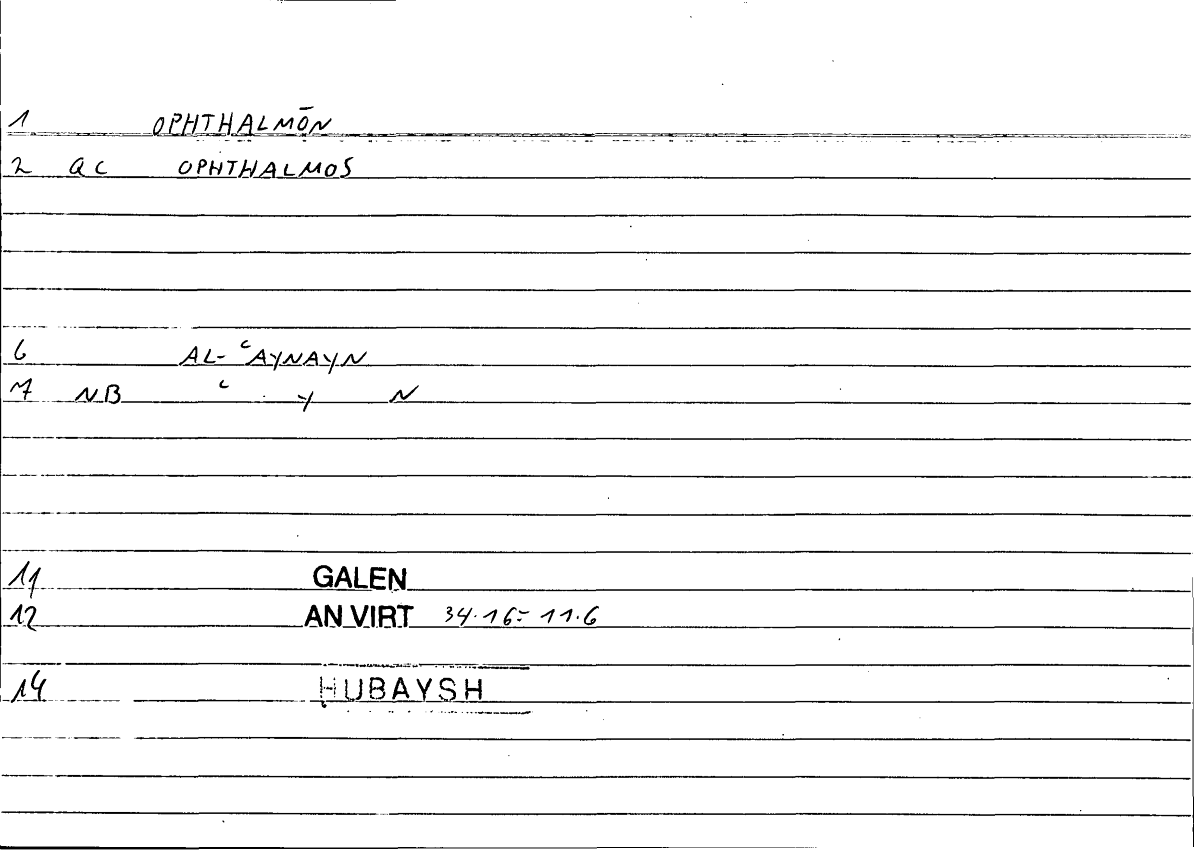 1 OPHTHALMŌN
2 QC OPHTHALMOS
6 AL-ʿAYNAYN
7 NB ʿ Y N
11 GALEN
12 AN VIRT 34.16= 11.6
14 HUBAYSH